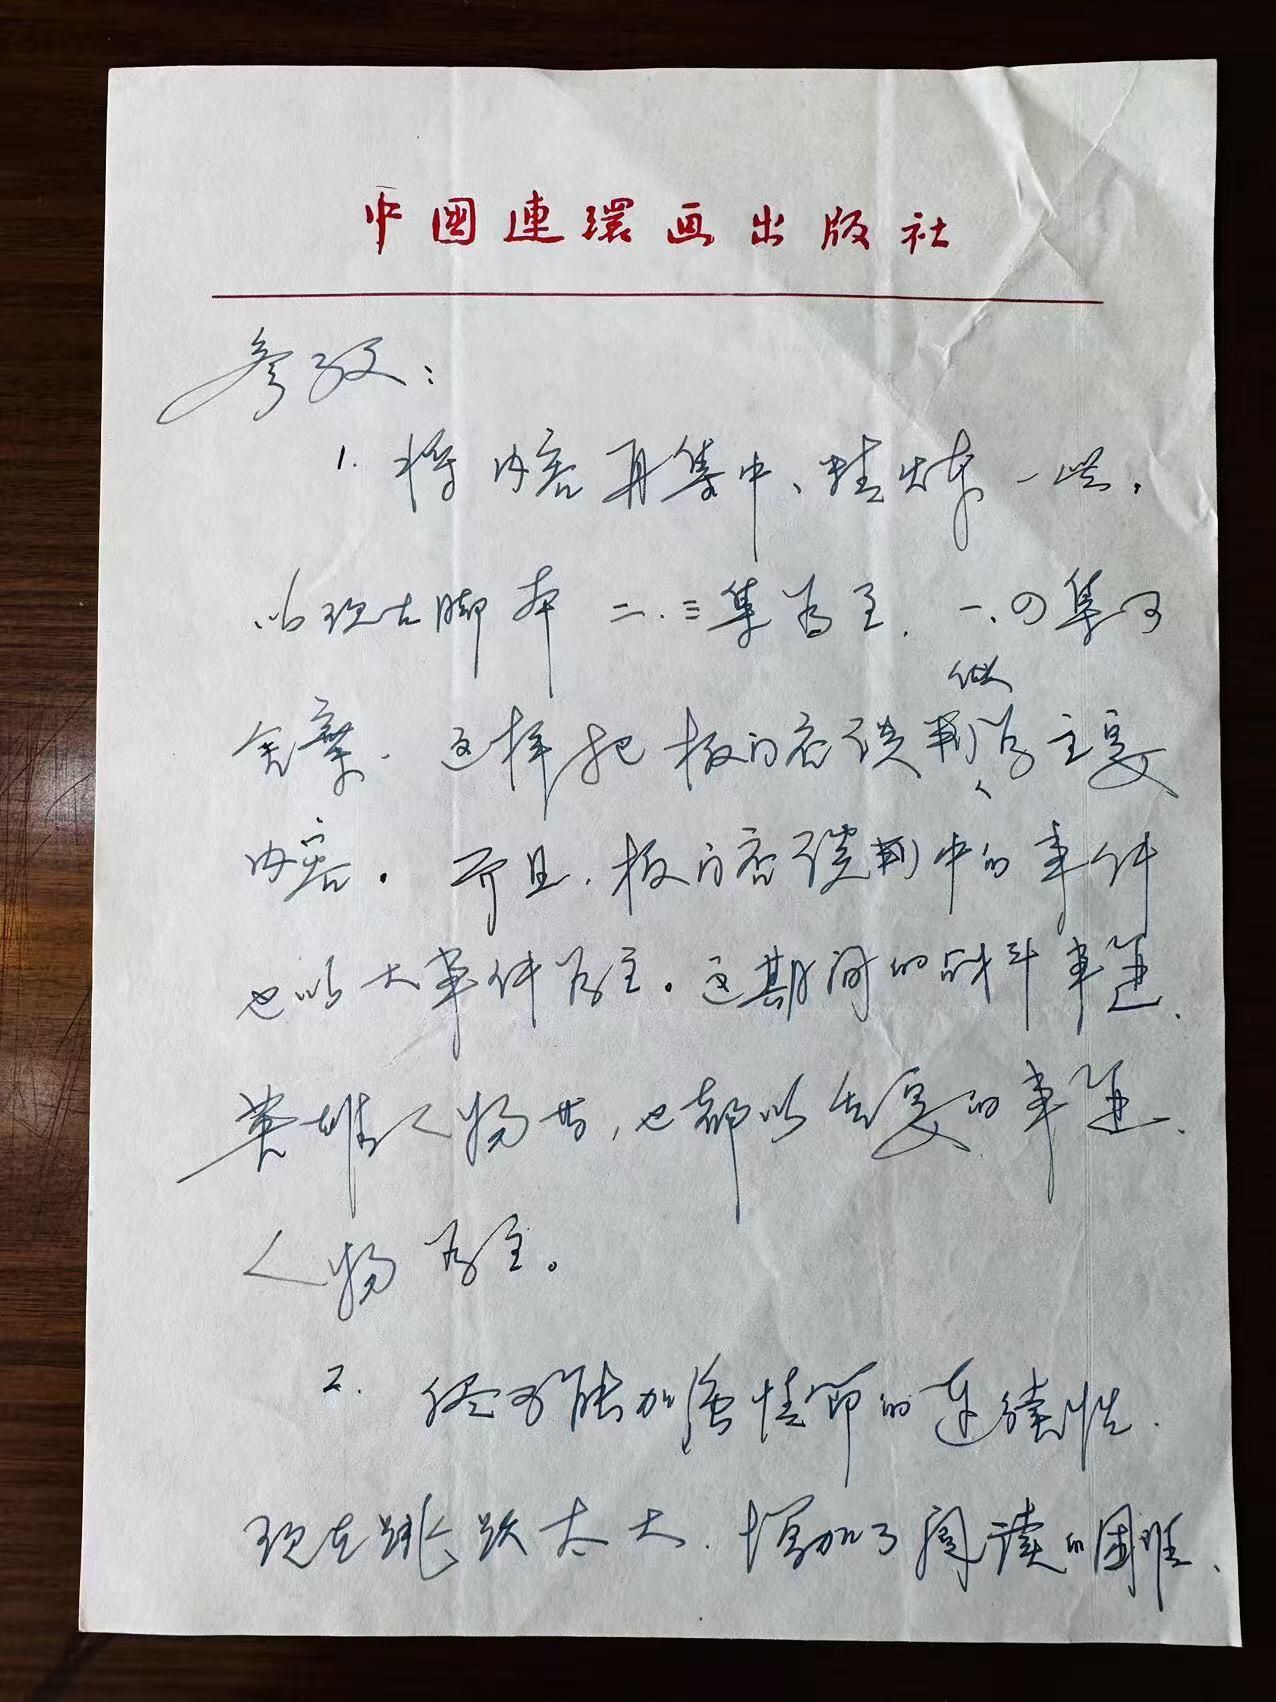 中國連環画出版社
参改:
1. 将内容再集中、精炼一些,
以现在脚本二、三集为主. 一、四集可
舍弃. 这样把板门店谈判做为主要
内容. 而且, 板门店谈判中的事件
也以大事件为主。这期间的战斗事迹、
英雄人物等, 也都以主要的事迹、
人物为主。
2. 尽可能加强情节的连续性.
现在跳跃太大. 增加了阅读的困难、